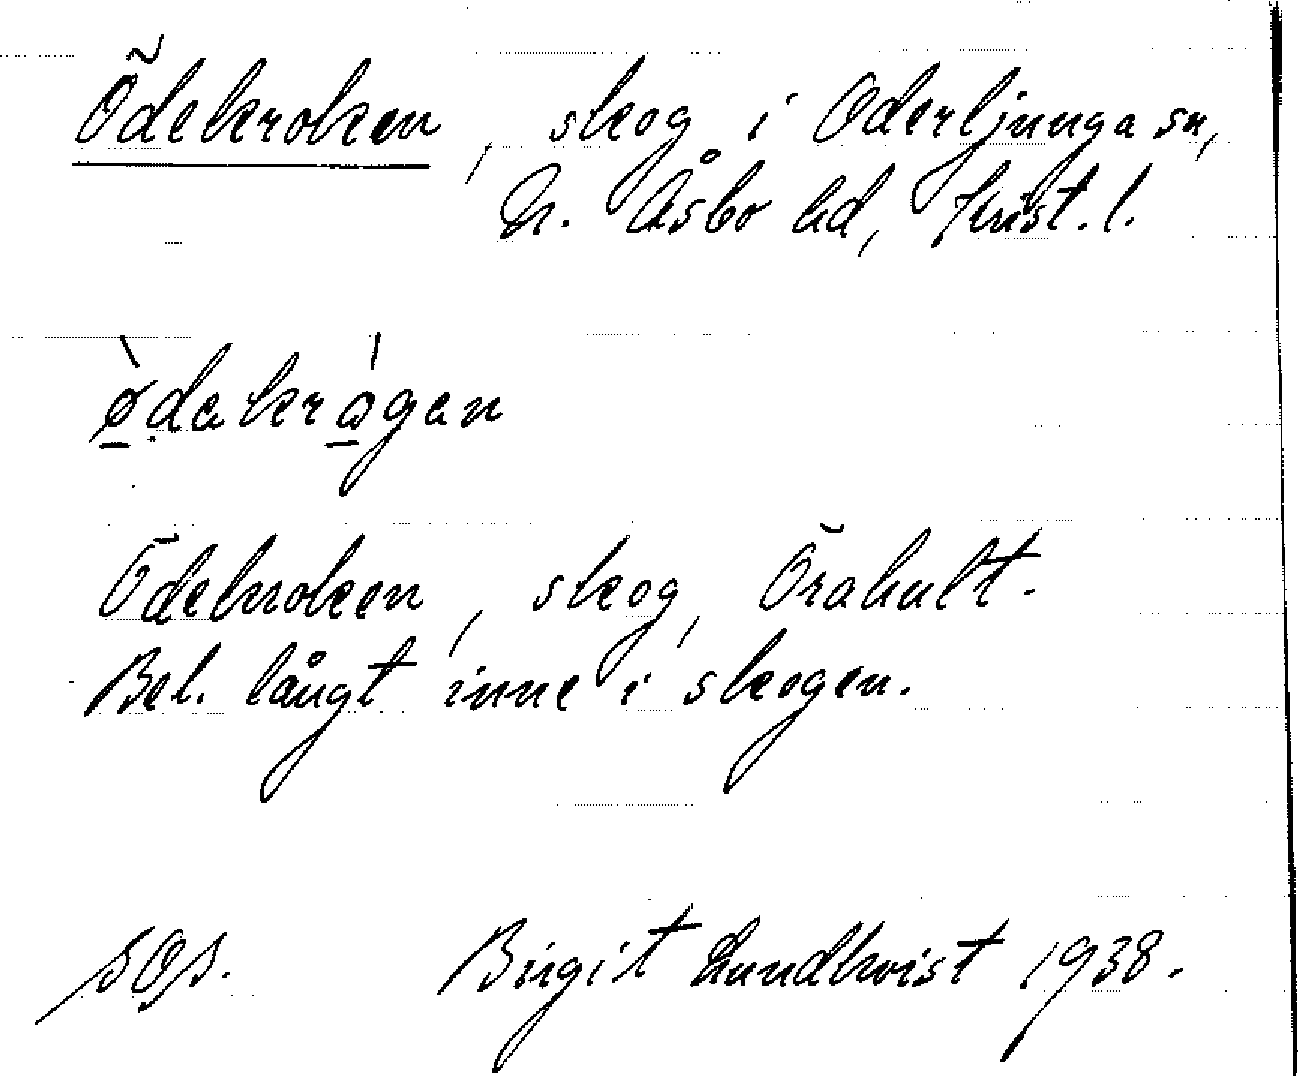 Ödekroken, skog i Oderljunga sn,
N. Åsbo hd, Krist. l.
ø̀dakrǻgan
Ödekroken, skog, Örahult.
Bel. långt inne i skogen.
SOS. Birgit Lundkvist 1938.